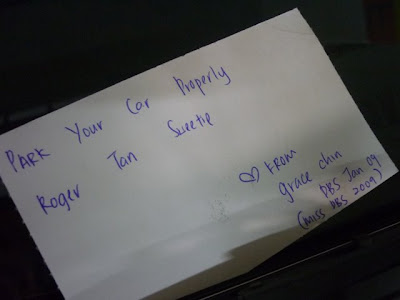 PARK Your Car Properly
Roger Tan Sweetie
♡ FROM
grace chin
DBS Jan 09.
(miss DBS 2009)